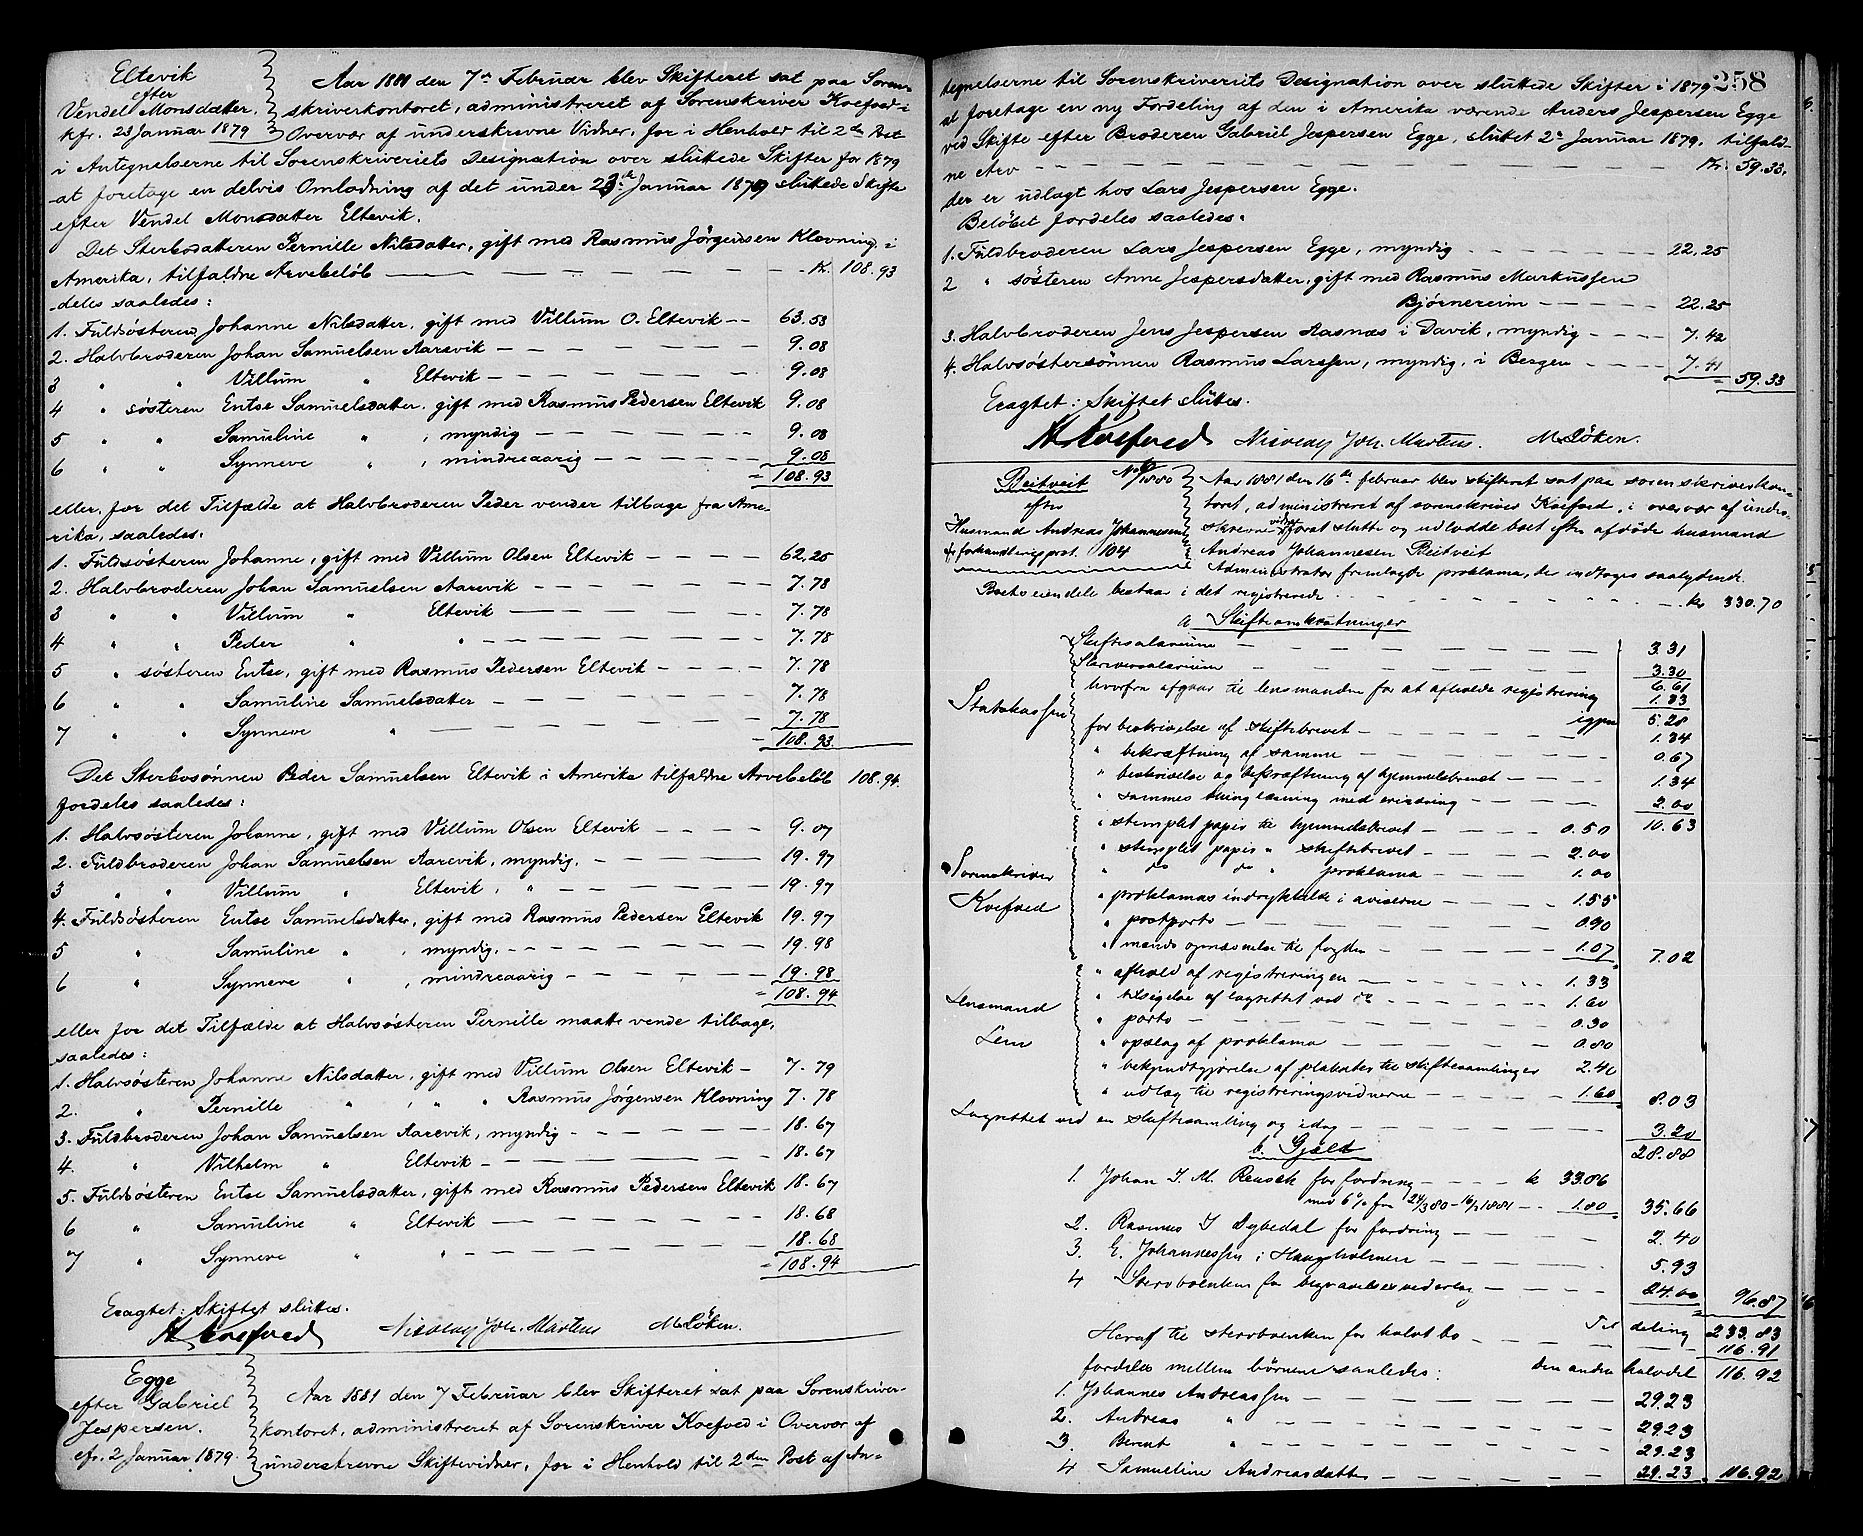 Eltevik
efter
Vendel Monsdatter.
kfr. 23 Januar 1879
Aar 1881 den 7de Februar blev Skifteret sat paa Soren-
skriverkontoret, administreret af Sorenskriver Koefoed i
Overvær af underskrevne Vidner, for i Henhold til 2den Post
i Antegnelserne til Sorenskriveriets Designation over sluttede Skifter for 1879
at foretage en delvis Omlodning af det under 23de Januar 1879 sluttede Skifte
efter Vendel Monsdatter Eltevik.
Det Sterbodatteren Pernille Nilsdatter, gift med Rasmus Jörgensen Klovning i
Amerika, tilfaldne Arvebelöb — Kr. 108.93
deles saaledes:
1. Fuldsösteren Johanne Nilsdatter, gift med Villum O. Eltevik — 63.53
2. Halvbroderen Johan Samuelsen Aarsvik — 9.08
3 " " Villum " Eltevik — 9.08
4 " sösteren Entse Samuelsdatter, gift med Rasmus Pedersen Eltevik 9.08
5 " " Samuline " , myndig — 9.08
6 " " Synneve " , mindreaarig — 9.08
= 108.93
eller, for det Tilfælde at Halvbroderen Peder vender tilbage fra Ame-
rika, saaledes:
1. Fuldsösteren Johanne, gift med Villum Olsen Eltevik — 62.25
2. Halvbroderen Johan Samuelsen Aarevik — 7.78
3 " " Villum " Eltevik — 7.78
4 " " Peder " " — 7.78
5 " sösteren Entse, gift med Rasmus Pedersen Eltevik — 7.78
6 " " Samuline Samuelsdatter — 7.78
7 " " Synneve " — 7.78
= 108.93
Det Sterbosönnen Peder Samuelsen Eltevik i Amerika tilfaldne Arvebelöb 108.94.
fordeles saaledes:
1. Halvsösteren Johanne, gift med Villum Olsen Eltevik — 9.07
2. Fuldbroderen Johan Samuelsen Aarevik, myndig. — 19.97
3 " " Villum " Eltevik, " — 19.97
4. Fuldsösteren Entse Samuelsdatter, gift med Rasmus Pedersen Eltevik 19.97
5 " Samuline " , myndig. — 19.98
6 " Synneve " , mindreaarig — 19.98
= 108.94
eller for det Tilfælde at Halvsösteren Pernille maatte vende tilbage,
saaledes:
1. Halvsösteren Johanne Nilsdatter, gift med Villum Olsen Eltevik — 7.79
2. " Pernille " , " " Rasmus Jörgensen Klovning 7.78
3. Fuldbroderen Johan Samuelsen Aarevik, myndig — 18.67
4. " Vilhelm " Eltevik — 18.67
5. Fuldsösteren Entse Samuelsdatter, gift med Rasmus Pedersen Eltevik 18.67
6 " Samuline " Eltevik — 18.68
7 " Synneve " " — 18.68
= 108.94
Eragtet: Skiftet sluttes.
H Koefoed Nicolay Joh. Martens M Löken.
Egge
efter Gabriel
Jespersen.
cfr. 2 Januar 1879.
Aar 1881 den 7 Februar blev Skifteret sat paa Sorenskriver-
kontoret, administreret af Sorenskriver Koefoed i Overvær af
underskrevne Skiftevidner, for i Henhold til 2den Post af An-
258
tegnelserne til Sorenskriveriets Designation over sluttede Skifter i 1879
at foretage en ny Fordeling af den i Amerika værende Anders Jespersen Egge
ved Skifte efter Broderen Gabriel Jespersen Egge, sluttet 2de Januar 1879, tilfald-
ne Arv — Kr. 59.33.
der er udlagt hos Lars Jespersen Egge.
Belöbet fordeles saaledes:
1. Fuldbroderen Lars Jespersen Egge, myndig — 22.25
2 " sösteren Anne Jespersdatter, gift med Rasmus Markussen
Bjørnereim — 22.25
3. Halvbroderen Jens Jespersen Aasnæs i Davik, myndig — 7.42
4. Halvsöstersönnen Rasmus Larssen, myndig, i Bergen — 7.41
= 59.33
Eragtet: Skiftet sluttes.
H Koefoed Nicolay Joh. Martens. M Löken.
Reitveit
efter
Husmand Andreas Johannesen
forhandlingsprot. 104
Aar 1881 den 16de februar blev skifteret sat paa sorenskriverkon-
toret, administreret af sorenskriver Koefoed, i overvær af under-
skrevne vidner for at slutte og udlodde boet efter afdøde husmand
Andreas Johannesen Reitveit
Administrator fremlagde proklama, der indtages saalydende.
Boets eiendele bestaar i det registrerede — kr 330.70
a Skifteomkostninger
Statskassen
Skiftesalarium — 3.31
Skriversalarium — 3.30
6.61
hvorfra afgaar til lensmanden for at afholde registrering 1.33
igjen 5.28
for beskrivelse af skiftebrevet — 1.34
" bekræftning af samme — 0.67
" beskrivelse og bekræftning af hjemmelsbrevet — 1.34
" sammes thinglæsning med erindring — 2.00
10.63
Sorenskriver
Koefoed
" stemplet papir til hjemmelsbrevet — 0.50
" stemplet papir " skiftebrevet — 2.00
" do do " proklama — 1.00
" proklamas indrykkelse i aviserne — 1.55
" postporto — 0.90
" mands opnævnelse til fogden — 1.07
7.02
Lensmand
Lem
" afhold af registreringen — 1.33
" tilsigelse af lagrettet ved do — 1.60
" porto — 0.30
" opslag af proklama — 0.80
" bekjendtgjørelse af plakater til skiftesamlinger 2.40
" udlæg til registreringsvidnerne — 1.60
8.03
Lagrettet ved en skiftesamling og idag — 3.20
28.88
b. Gjæld
1. Johan J. M. Rensch for fordring — kr 33.86
med 6% fra 24/3 80 - 16/2 1881 — 1.80 35.66
2. Rasmus J Dybedal for fordring — 2.40
3. E. Johannessen i Haugholmen — 5.93
4 Sterboenken for begravelsesvederlag — 24.00 96.87
Til deling 233.83
Heraf til sterboenken for halvt bo — 116.91
den anden halvdel 116.92
fordeles mellem børnene saaledes:
1. Johannes Andreassen — 29.23
2. Andreas " — 29.23
3. Berent " — 29.23
4 Samueline Andreasdatter — 29.23 116.92